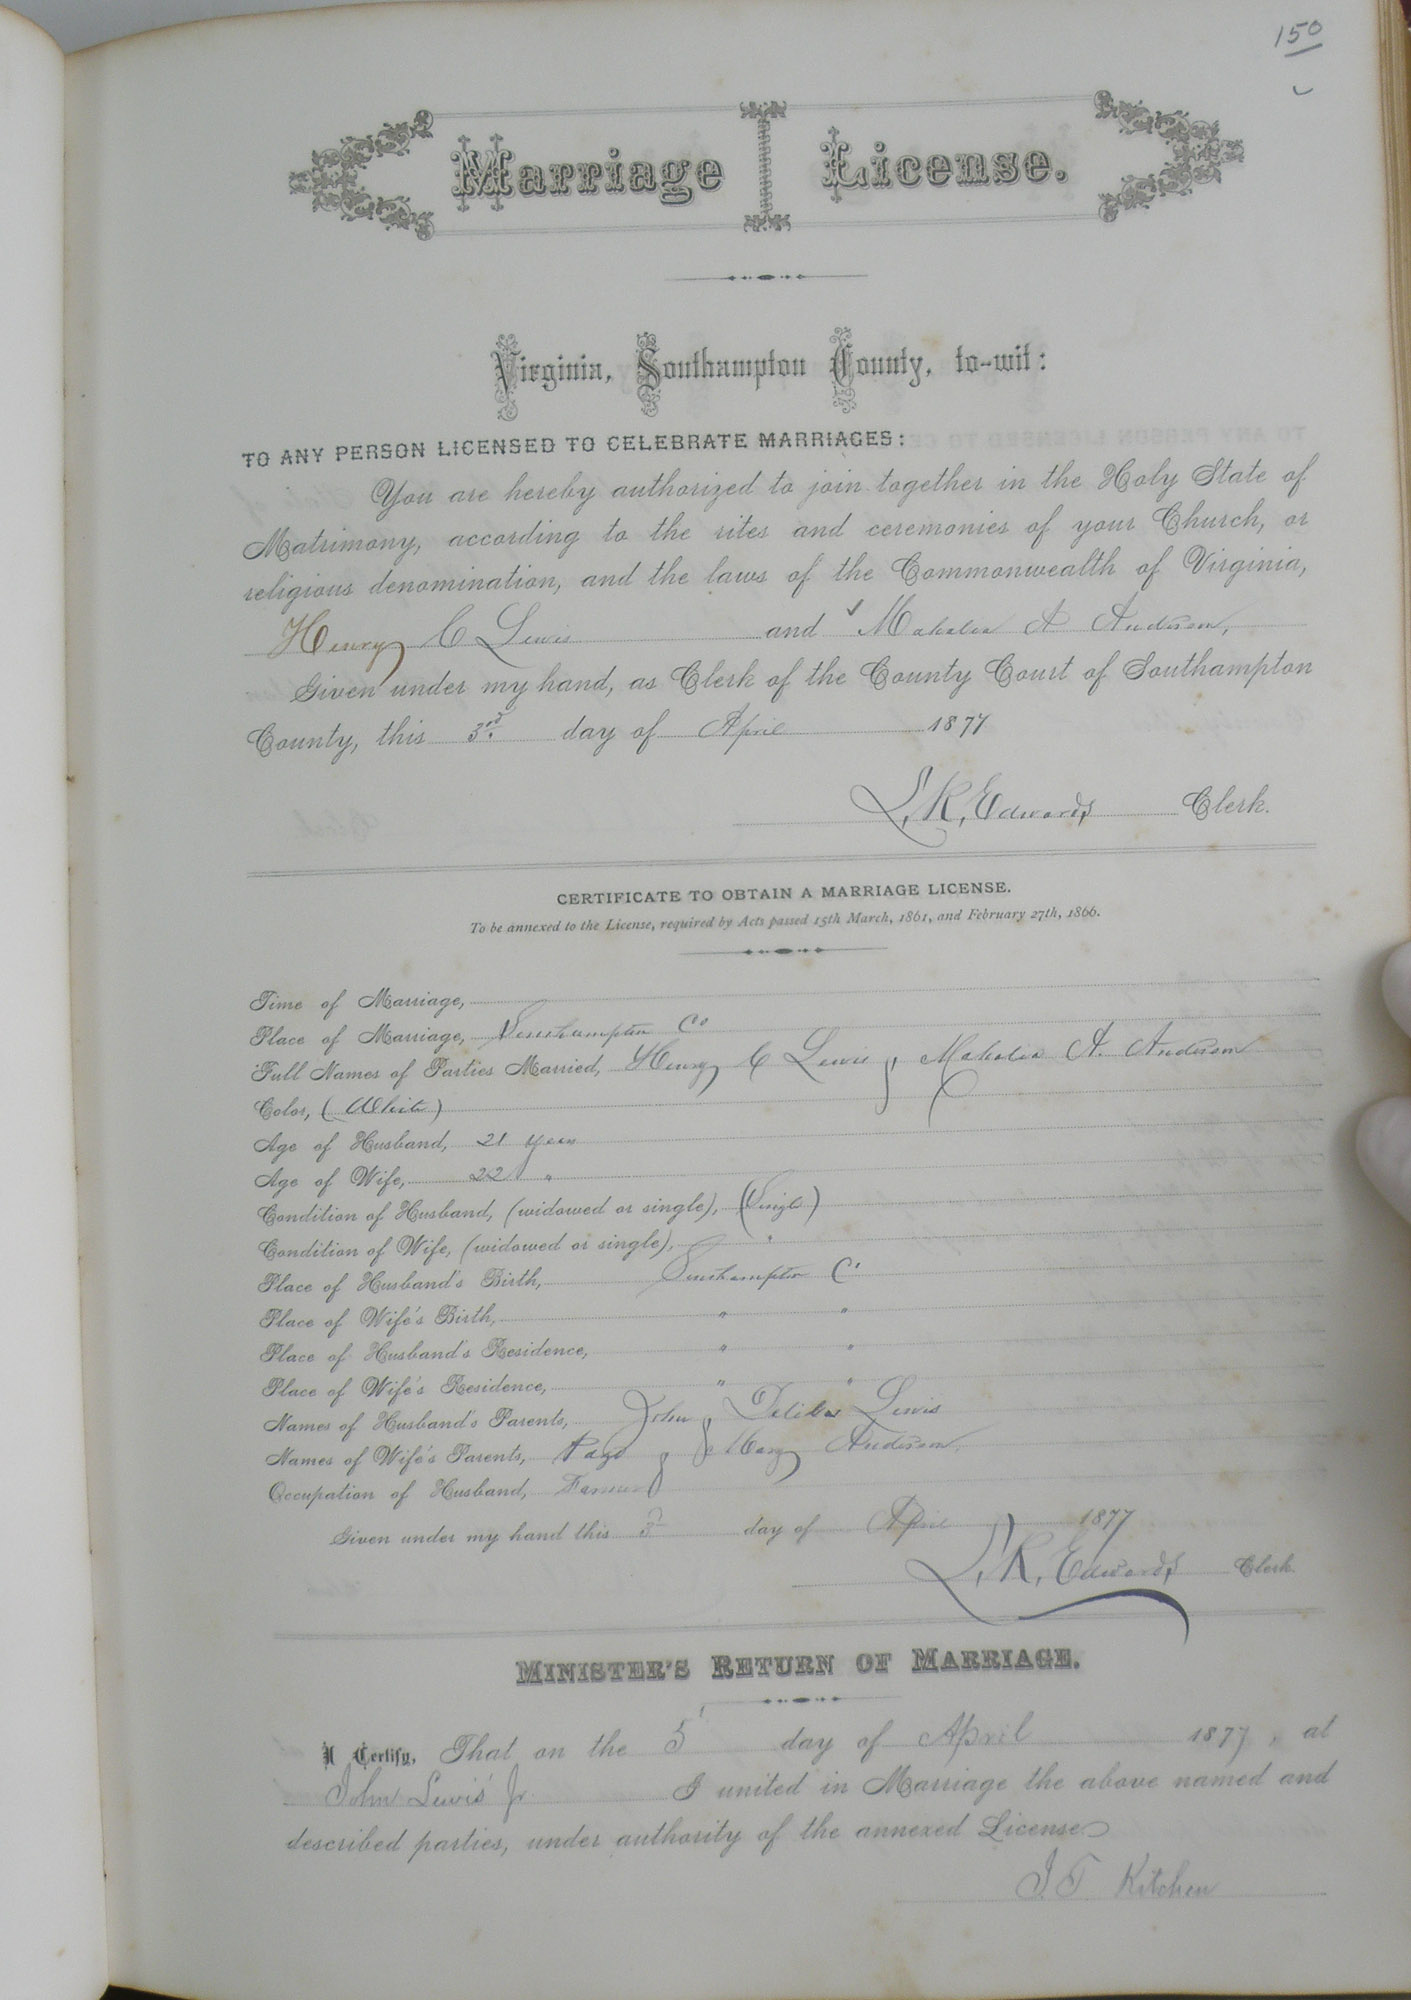 150
Marriage License.
Virginia, Southampton County, to-wit:
TO ANY PERSON LICENSED TO CELEBRATE MARRIAGES:
You are hereby authorized to join together in the Holy State of
Matrimony, according to the rites and ceremonies of your Church, or
religious denomination, and the laws of the Commonwealth of Virginia,
Henry C Lewis and Mahalia A Anderson,
Given under my hand, as Clerk of the County Court of Southampton
County, this 3rd. day of April 1877
L. R. Edwards Clerk.
CERTIFICATE TO OBTAIN A MARRIAGE LICENSE.
To be annexed to the License, required by Acts passed 15th March, 1861, and February 27th, 1866.
Time of Marriage,
Place of Marriage, Southampton Co
Full Names of Parties Married, Henry C Lewis & Mahalia A. Anderson
Color, (White)
Age of Husband, 21 years
Age of Wife, 22 "
Condition of Husband, (widowed or single), (Single)
Condition of Wife, (widowed or single), "
Place of Husband's Birth, Southampton Co
Place of Wife's Birth, " "
Place of Husband's Residence, " "
Place of Wife's Residence, " "
Names of Husband's Parents, John & Lewis
Names of Wife's Parents, & Mary Anderson.
Occupation of Husband, Farmer
Given under my hand this 3 day of April 1877
L. R. Edwards Clerk.
MINISTER'S RETURN OF MARRIAGE.
I Certify, That on the 5 day of April 1877, at
John Lewis' Jr I united in Marriage the above named and
described parties, under authority of the annexed License
J T Kitchen